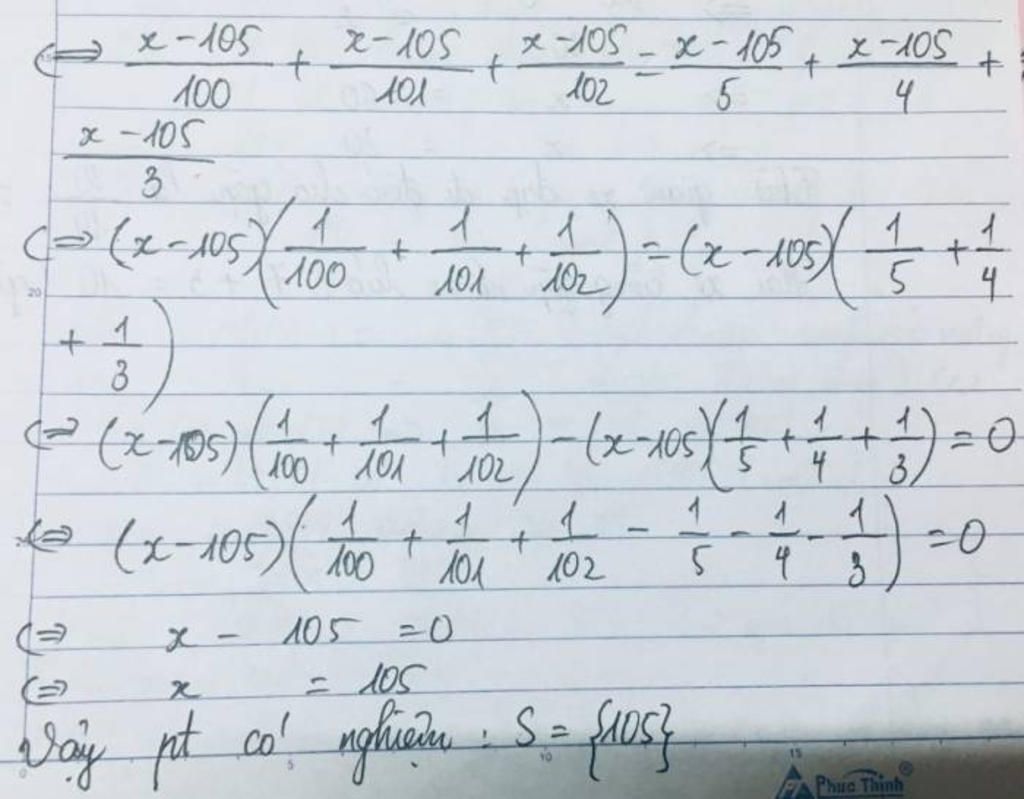 ⇔ (x-105)/100 + (x-105)/101 + (x-105)/102 = (x-105)/5 + (x-105)/4 +
(x-105)/3
⇔ (x-105)(1/100 + 1/101 + 1/102) = (x-105)(1/5 + 1/4
+ 1/3)
⇔ (x-105)(1/100 + 1/101 + 1/102) - (x-105)(1/5 + 1/4 + 1/3) = 0
⇔ (x-105)(1/100 + 1/101 + 1/102 - 1/5 - 1/4 - 1/3) = 0
⇔ x - 105 = 0
⇔ x = 105
Vậy pt có nghiệm : S = {105}
5 10 15 20
Phuc Thinh®